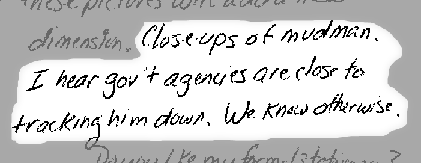 these pictures will add a new
dimension. Close-ups of mudman.
I hear gov't agencies are close to
tracking him down. We know otherwise.
Do you like my formul